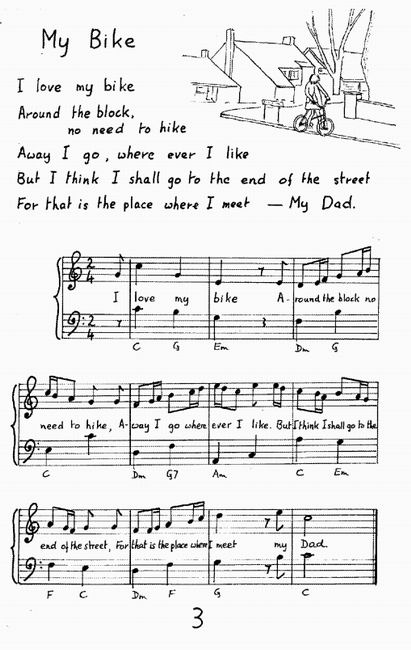 My Bike
I love my bike
Around the block,
no need to hike
Away I go, where ever I like
But I think I shall go to the end of the street
For that is the place where I meet — My Dad.
2 4
I love my bike A- round the block no
2 4
C G Em Dm G
need to hike, A- way I go where ever I like. But I think I shall go to the
C Dm G7 Am C Em
end of the street, For that is the place where I meet my Dad.
F C Dm F G C
3